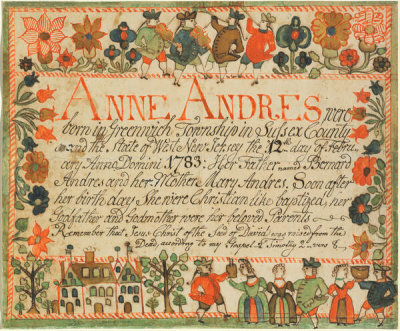 ANNE ANDRES were
born in Greenwich Township in Sussex County
and the State of West New Jersey the 12th day of Febru
ary Anno Domini 1783. Her Father name's Bernard
Andres and her Mother Mary Andres. Soon after
her birth day She were Christian like baptised, her
Godfather and Godmother were her beloved Parents
Remember that Jesus Christ of the Seed of David was raised from the
Dead, according to my Gospel 2 Timothy 2 vers 8